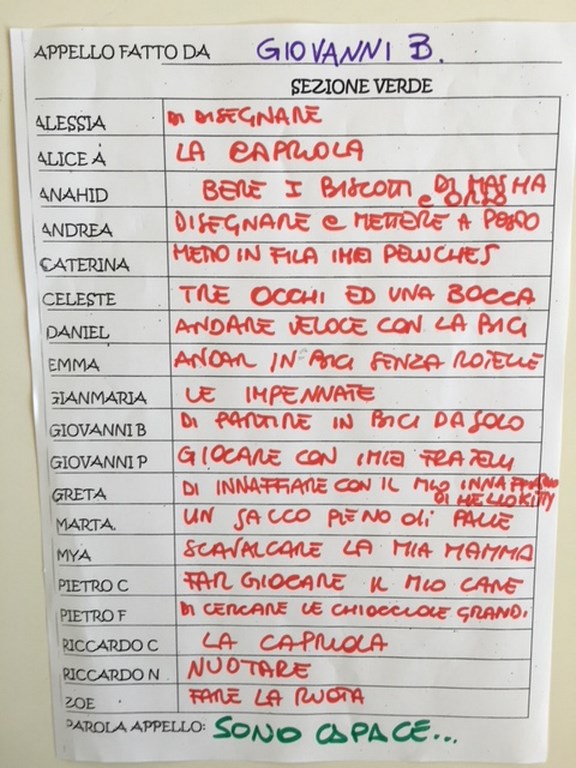 APPELLO FATTO DA GIOVANNI B.
SEZIONE VERDE
ALESSIA DI DISEGNARE
ALICE A LA CAPRIOLA
ANAHID BERE I BISCOTTI DI MASHA
E ORSO
ANDREA DISEGNARE e METTERE A POSTO
CATERINA METTO IN FILA I MIEI PELUCHES
CELESTE TRE OCCHI ED UNA BOCCA
DANIEL ANDARE VELOCE CON LA BICI
EMMA ANDAR IN BICI SENZA ROTELLE
GIANMARIA LE IMPENNATE
GIOVANNI B DI PARTIRE IN BICI DA SOLO
GIOVANNI P GIOCARE CON I MIEI FRATELLI
GRETA DI INNAFFIARE CON IL MIO INNAFFIATOIO
DI HELLO KITTY
MARTA. UN SACCO PIENO di PALLE
MYA SCAVALCARE LA MIA MAMMA
PIETRO C FAR GIOCARE IL MIO CANE
PIETRO F DI CERCARE LE CHIOCCIOLE GRANDI
RICCARDO C LA CAPRIOLA
RICCARDO N NUOTARE
ZOE FARE LA RUOTA
PAROLA APPELLO: SONO CAPACE...